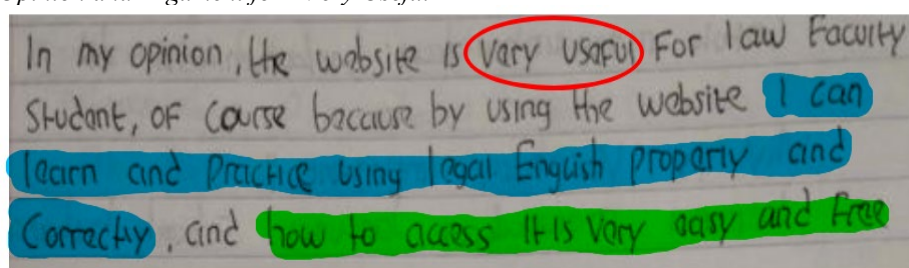 In my opinion, the website is very useful For law Faculty
Student, of course because by using the website I can
learn and practice using legal English properly and
Correctly, and how to access it is very easy and free